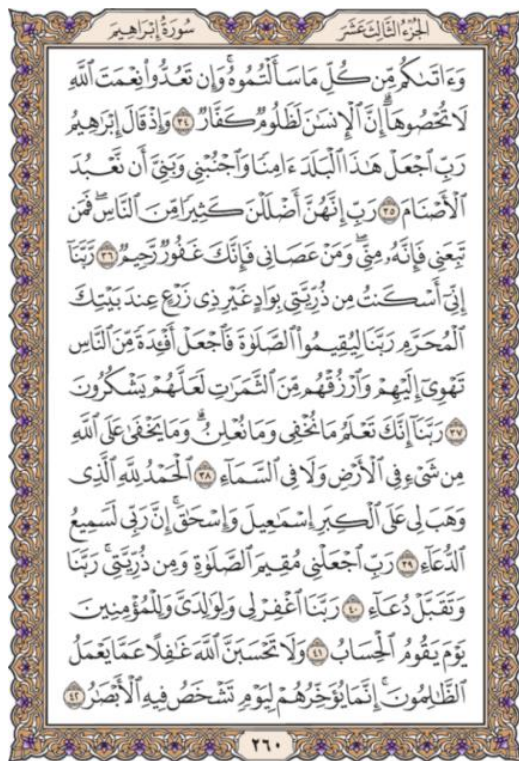 الجُزْءُ الثَّالِثَ عَشَرَ سُورَةُ إِبْرَاهِيمَ
وَءَاتَىٰكُم مِّن كُلِّ مَا سَأَلْتُمُوهُۚ وَإِن تَعُدُّوا۟ نِعْمَتَ ٱللَّهِ
لَا تُحْصُوهَآۗ إِنَّ ٱلْإِنسَٰنَ لَظَلُومٌۭ كَفَّارٌۭ ٣٤ وَإِذْ قَالَ إِبْرَٰهِيمُ
رَبِّ ٱجْعَلْ هَٰذَا ٱلْبَلَدَ ءَامِنًۭا وَٱجْنُبْنِى وَبَنِىَّ أَن نَّعْبُدَ
ٱلْأَصْنَامَ ٣٥ رَبِّ إِنَّهُنَّ أَضْلَلْنَ كَثِيرًۭا مِّنَ ٱلنَّاسِۖ فَمَن
تَبِعَنِى فَإِنَّهُۥ مِنِّىۖ وَمَنْ عَصَانِى فَإِنَّكَ غَفُورٌۭ رَّحِيمٌۭ ٣٦ رَّبَّنَآ
إِنِّىٓ أَسْكَنتُ مِن ذُرِّيَّتِى بِوَادٍ غَيْرِ ذِى زَرْعٍ عِندَ بَيْتِكَ
ٱلْمُحَرَّمِ رَبَّنَا لِيُقِيمُوا۟ ٱلصَّلَوٰةَ فَٱجْعَلْ أَفْـِٔدَةًۭ مِّنَ ٱلنَّاسِ
تَهْوِىٓ إِلَيْهِمْ وَٱرْزُقْهُم مِّنَ ٱلثَّمَرَٰتِ لَعَلَّهُمْ يَشْكُرُونَ
٣٧ رَبَّنَآ إِنَّكَ تَعْلَمُ مَا نُخْفِى وَمَا نُعْلِنُۗ وَمَا يَخْفَىٰ عَلَى ٱللَّهِ
مِن شَىْءٍۢ فِى ٱلْأَرْضِ وَلَا فِى ٱلسَّمَآءِ ٣٨ ٱلْحَمْدُ لِلَّهِ ٱلَّذِى
وَهَبَ لِى عَلَى ٱلْكِبَرِ إِسْمَٰعِيلَ وَإِسْحَٰقَۚ إِنَّ رَبِّى لَسَمِيعُ
ٱلدُّعَآءِ ٣٩ رَبِّ ٱجْعَلْنِى مُقِيمَ ٱلصَّلَوٰةِ وَمِن ذُرِّيَّتِىۚ رَبَّنَا
وَتَقَبَّلْ دُعَآءِ ٤٠ رَبَّنَا ٱغْفِرْ لِى وَلِوَٰلِدَىَّ وَلِلْمُؤْمِنِينَ
يَوْمَ يَقُومُ ٱلْحِسَابُ ٤١ وَلَا تَحْسَبَنَّ ٱللَّهَ غَٰفِلًا عَمَّا يَعْمَلُ
ٱلظَّٰلِمُونَۚ إِنَّمَا يُؤَخِّرُهُمْ لِيَوْمٍۢ تَشْخَصُ فِيهِ ٱلْأَبْصَٰرُ ٤٢
٢٦٠